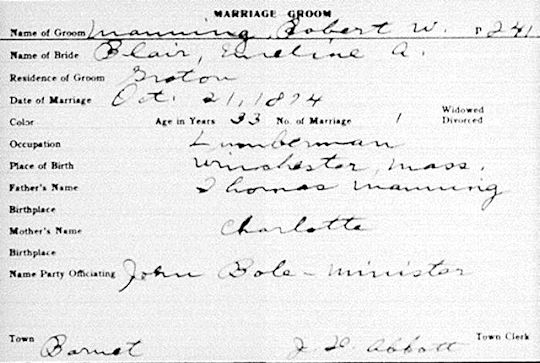 MARRIAGE GROOM
Name of Groom Manning, Robert W. P 241
Name of Bride Blair, Emeline A.
Residence of Groom Groton
Date of Marriage Oct. 21, 1874
Widowed
Color Age in Years 33 No. of Marriage 1 Divorced
Occupation Lumberman
Place of Birth Winchester, Mass.
Father's Name Thomas Manning
Birthplace
Mother's Name Charlotte
Birthplace
Name Party Officiating John Bole - Minister
Town Barnet J. D. Abbott Town Clerk